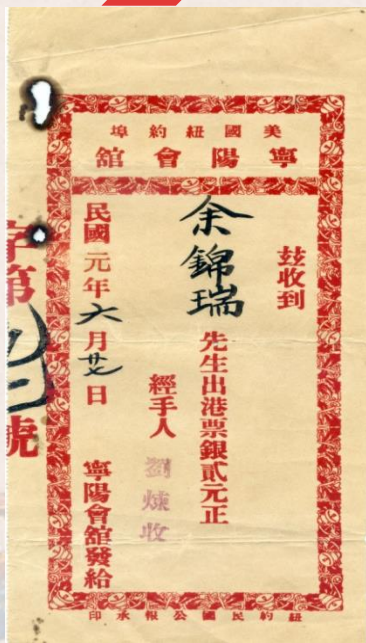 美國紐約埠
寧陽會舘
茲收到
余錦瑞先生出港票銀貳元正
經手人 劉煉收
民國元年六月廿七日 寧陽會舘發給
字第 號
紐約民國公報承印